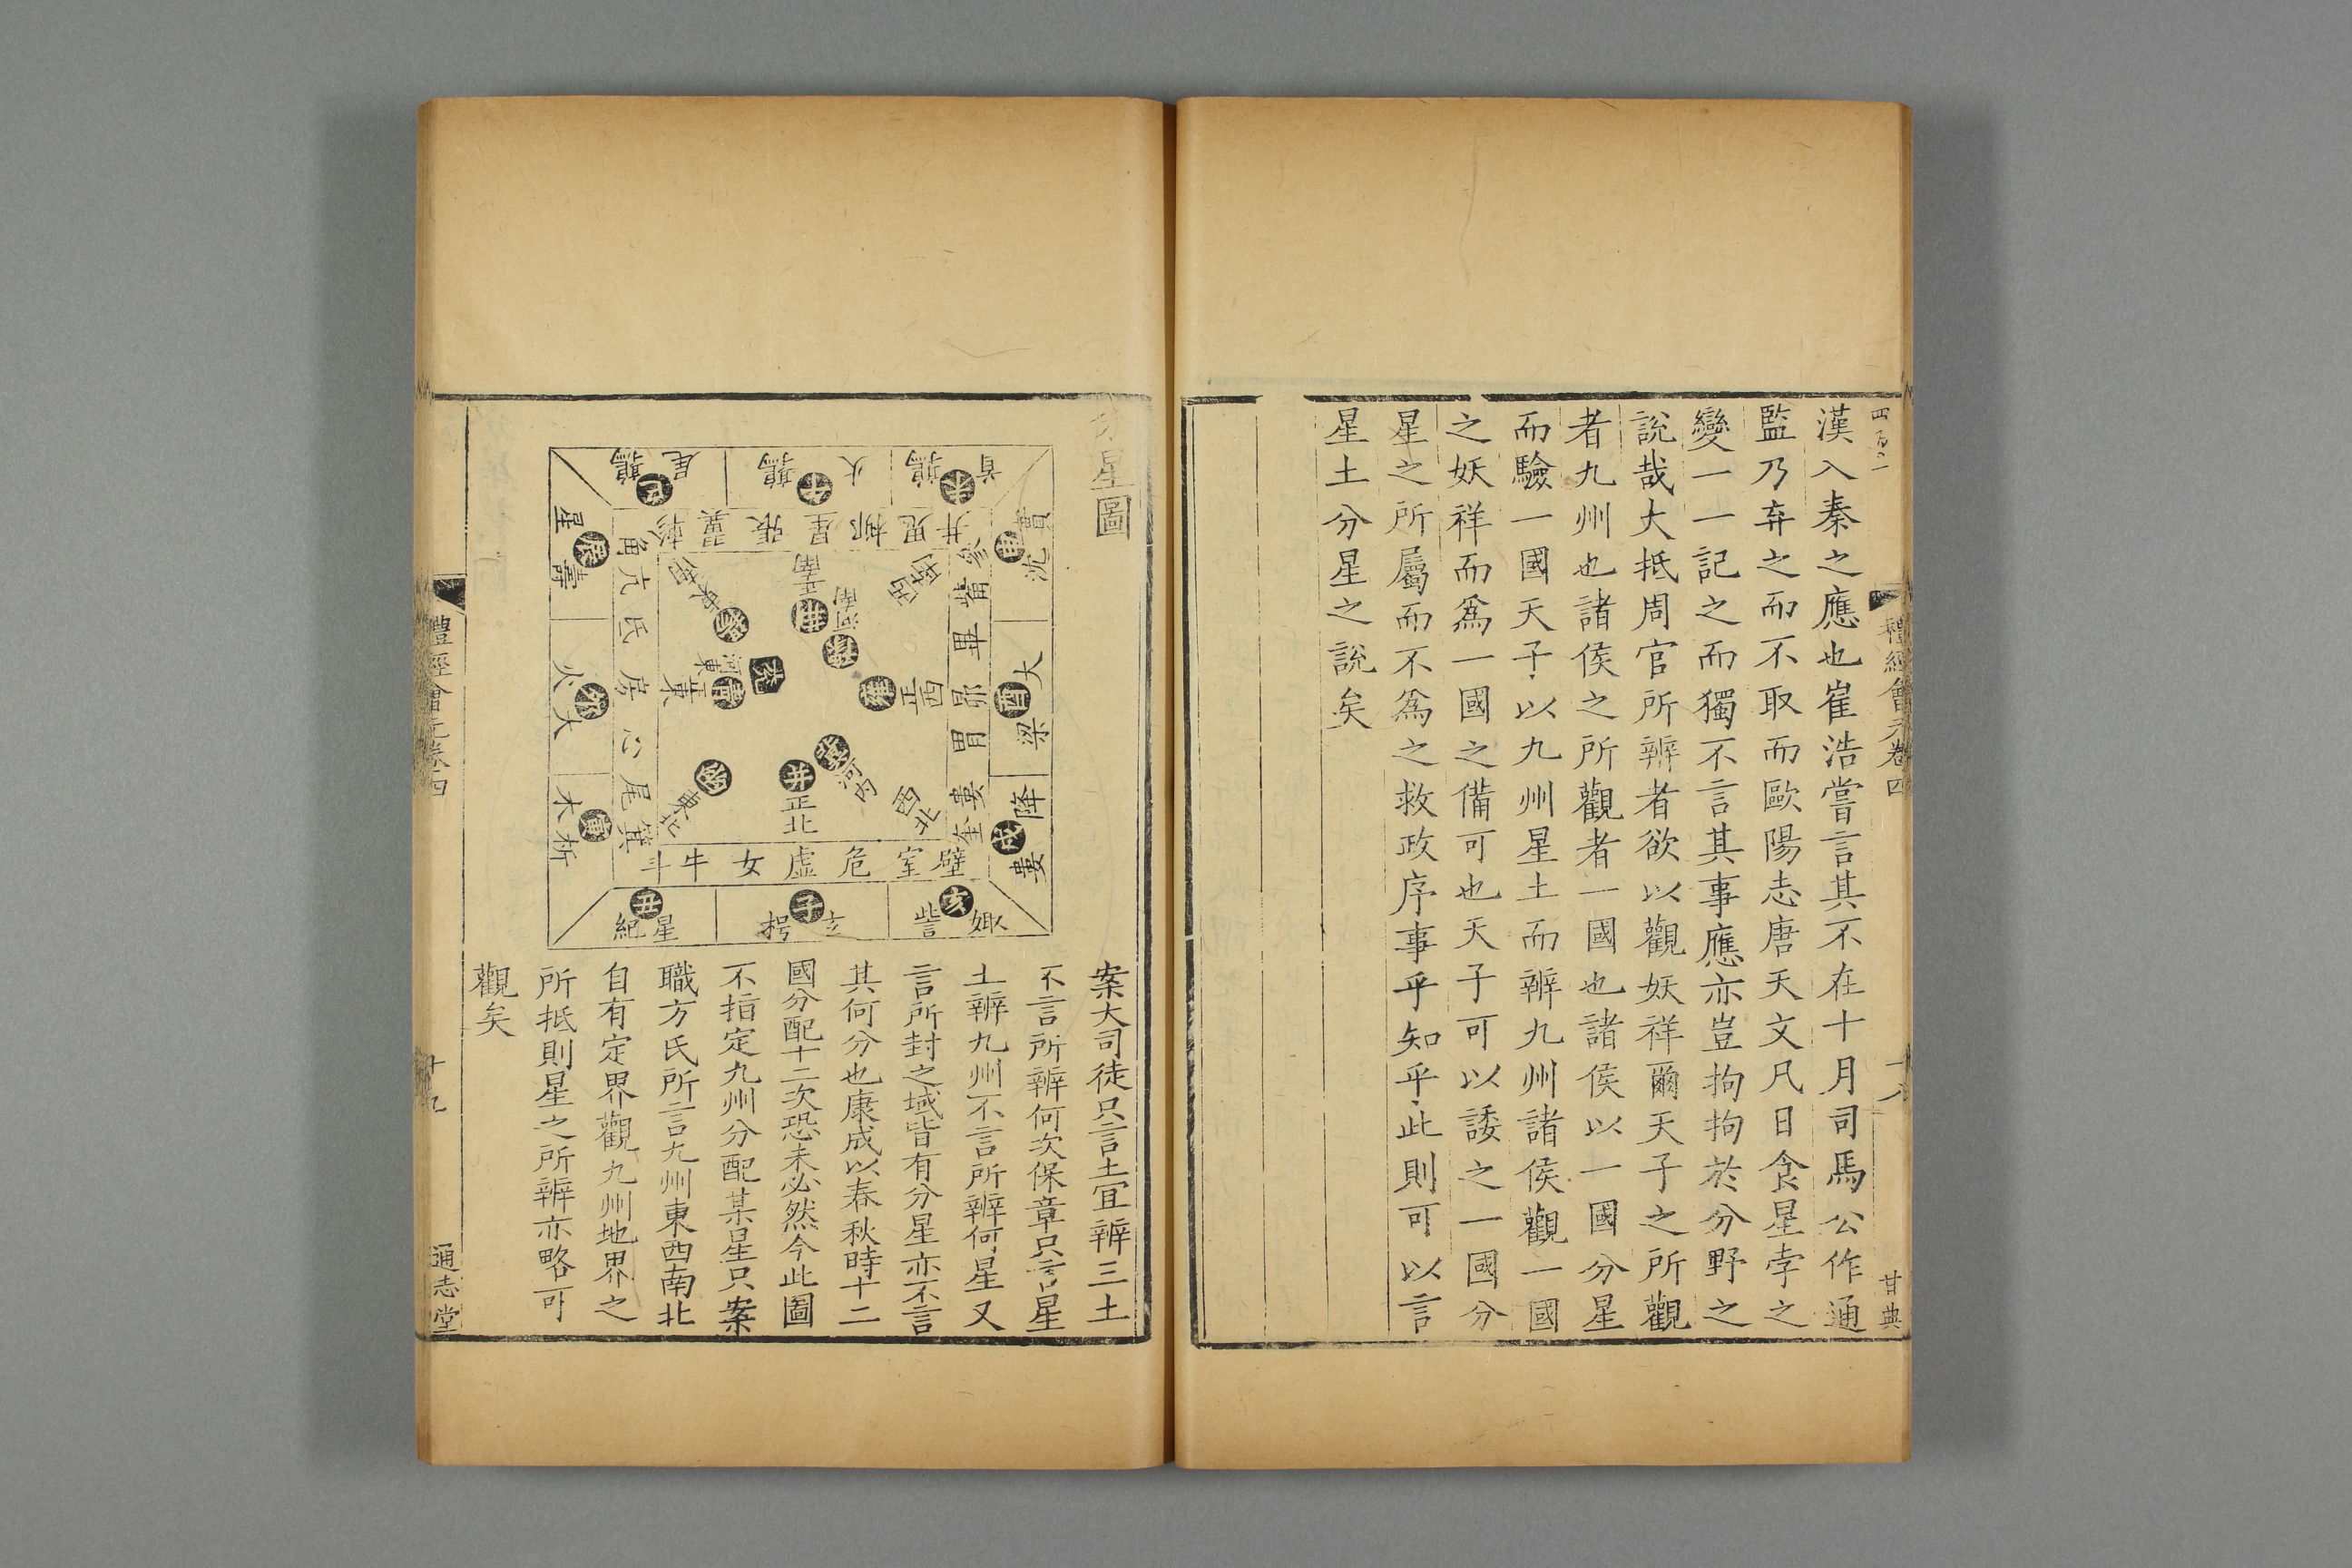 漢入秦之應也崔浩嘗言其不在十月司馬公作通
監乃弃之而不取而歐陽志唐天文凡日食星孛之
變一一記之而獨不言其事應亦豈拘拘於分野之
說哉大抵周官所辨者欲以觀妖祥爾天子之所觀
者九州也諸侯之所觀者一國也諸侯以一國分星
而驗一國天子以九州星土而辨九州諸侯觀一國
之妖祥而爲一國之備可也天子可以諉之一國分
星之所屬而不爲之救政序事乎知乎此則可以言
星土分星之說矣
四百〇一
禮經會元卷四
十八
甘典
星圖
首鶉
未
火鶉
午
尾鶉
巳
井鬼柳星張翼軫
星壽
辰
火大
卯
木析
寅
角亢氐房心尾箕
實沈
申
大梁
酉
降婁
戌
參觜畢昴胃婁奎
斗牛女虛危室壁
星紀
丑
玄枵
子
娵訾
亥
正南
荆
河南
豫
西南
東南
揚
河東
兗
正東
青
正西
雍
東北
幽
正北
并
河內
冀
西北
案大司徒只言土宜辨三土
不言所辨何次保章只言星
土辨九州不言所辨何星又
言所封之域皆有分星亦不言
其何分也康成以春秋時十二
國分配十二次恐未必然今此圖
不指定九州分配某星只案
職方氏所言九州東西南北
自有定界觀九州地界之
所抵則星之所辨亦略可
觀矣
禮經會元卷四
十九
通志堂